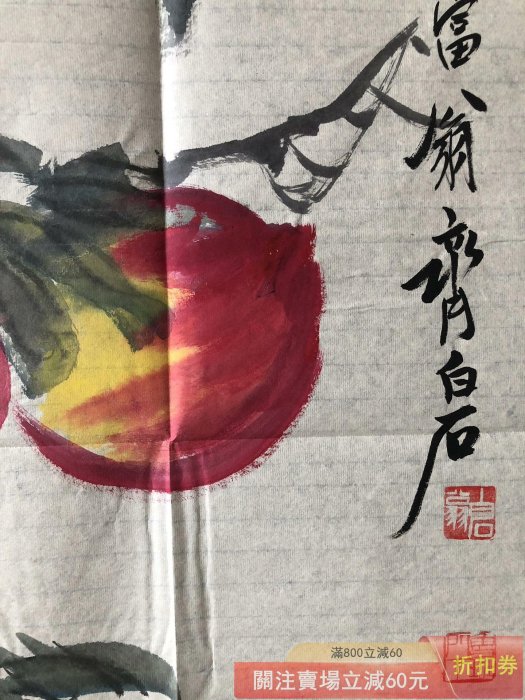 富翁齊白石
滿800立減60
關注賣場立減60元
折扣券